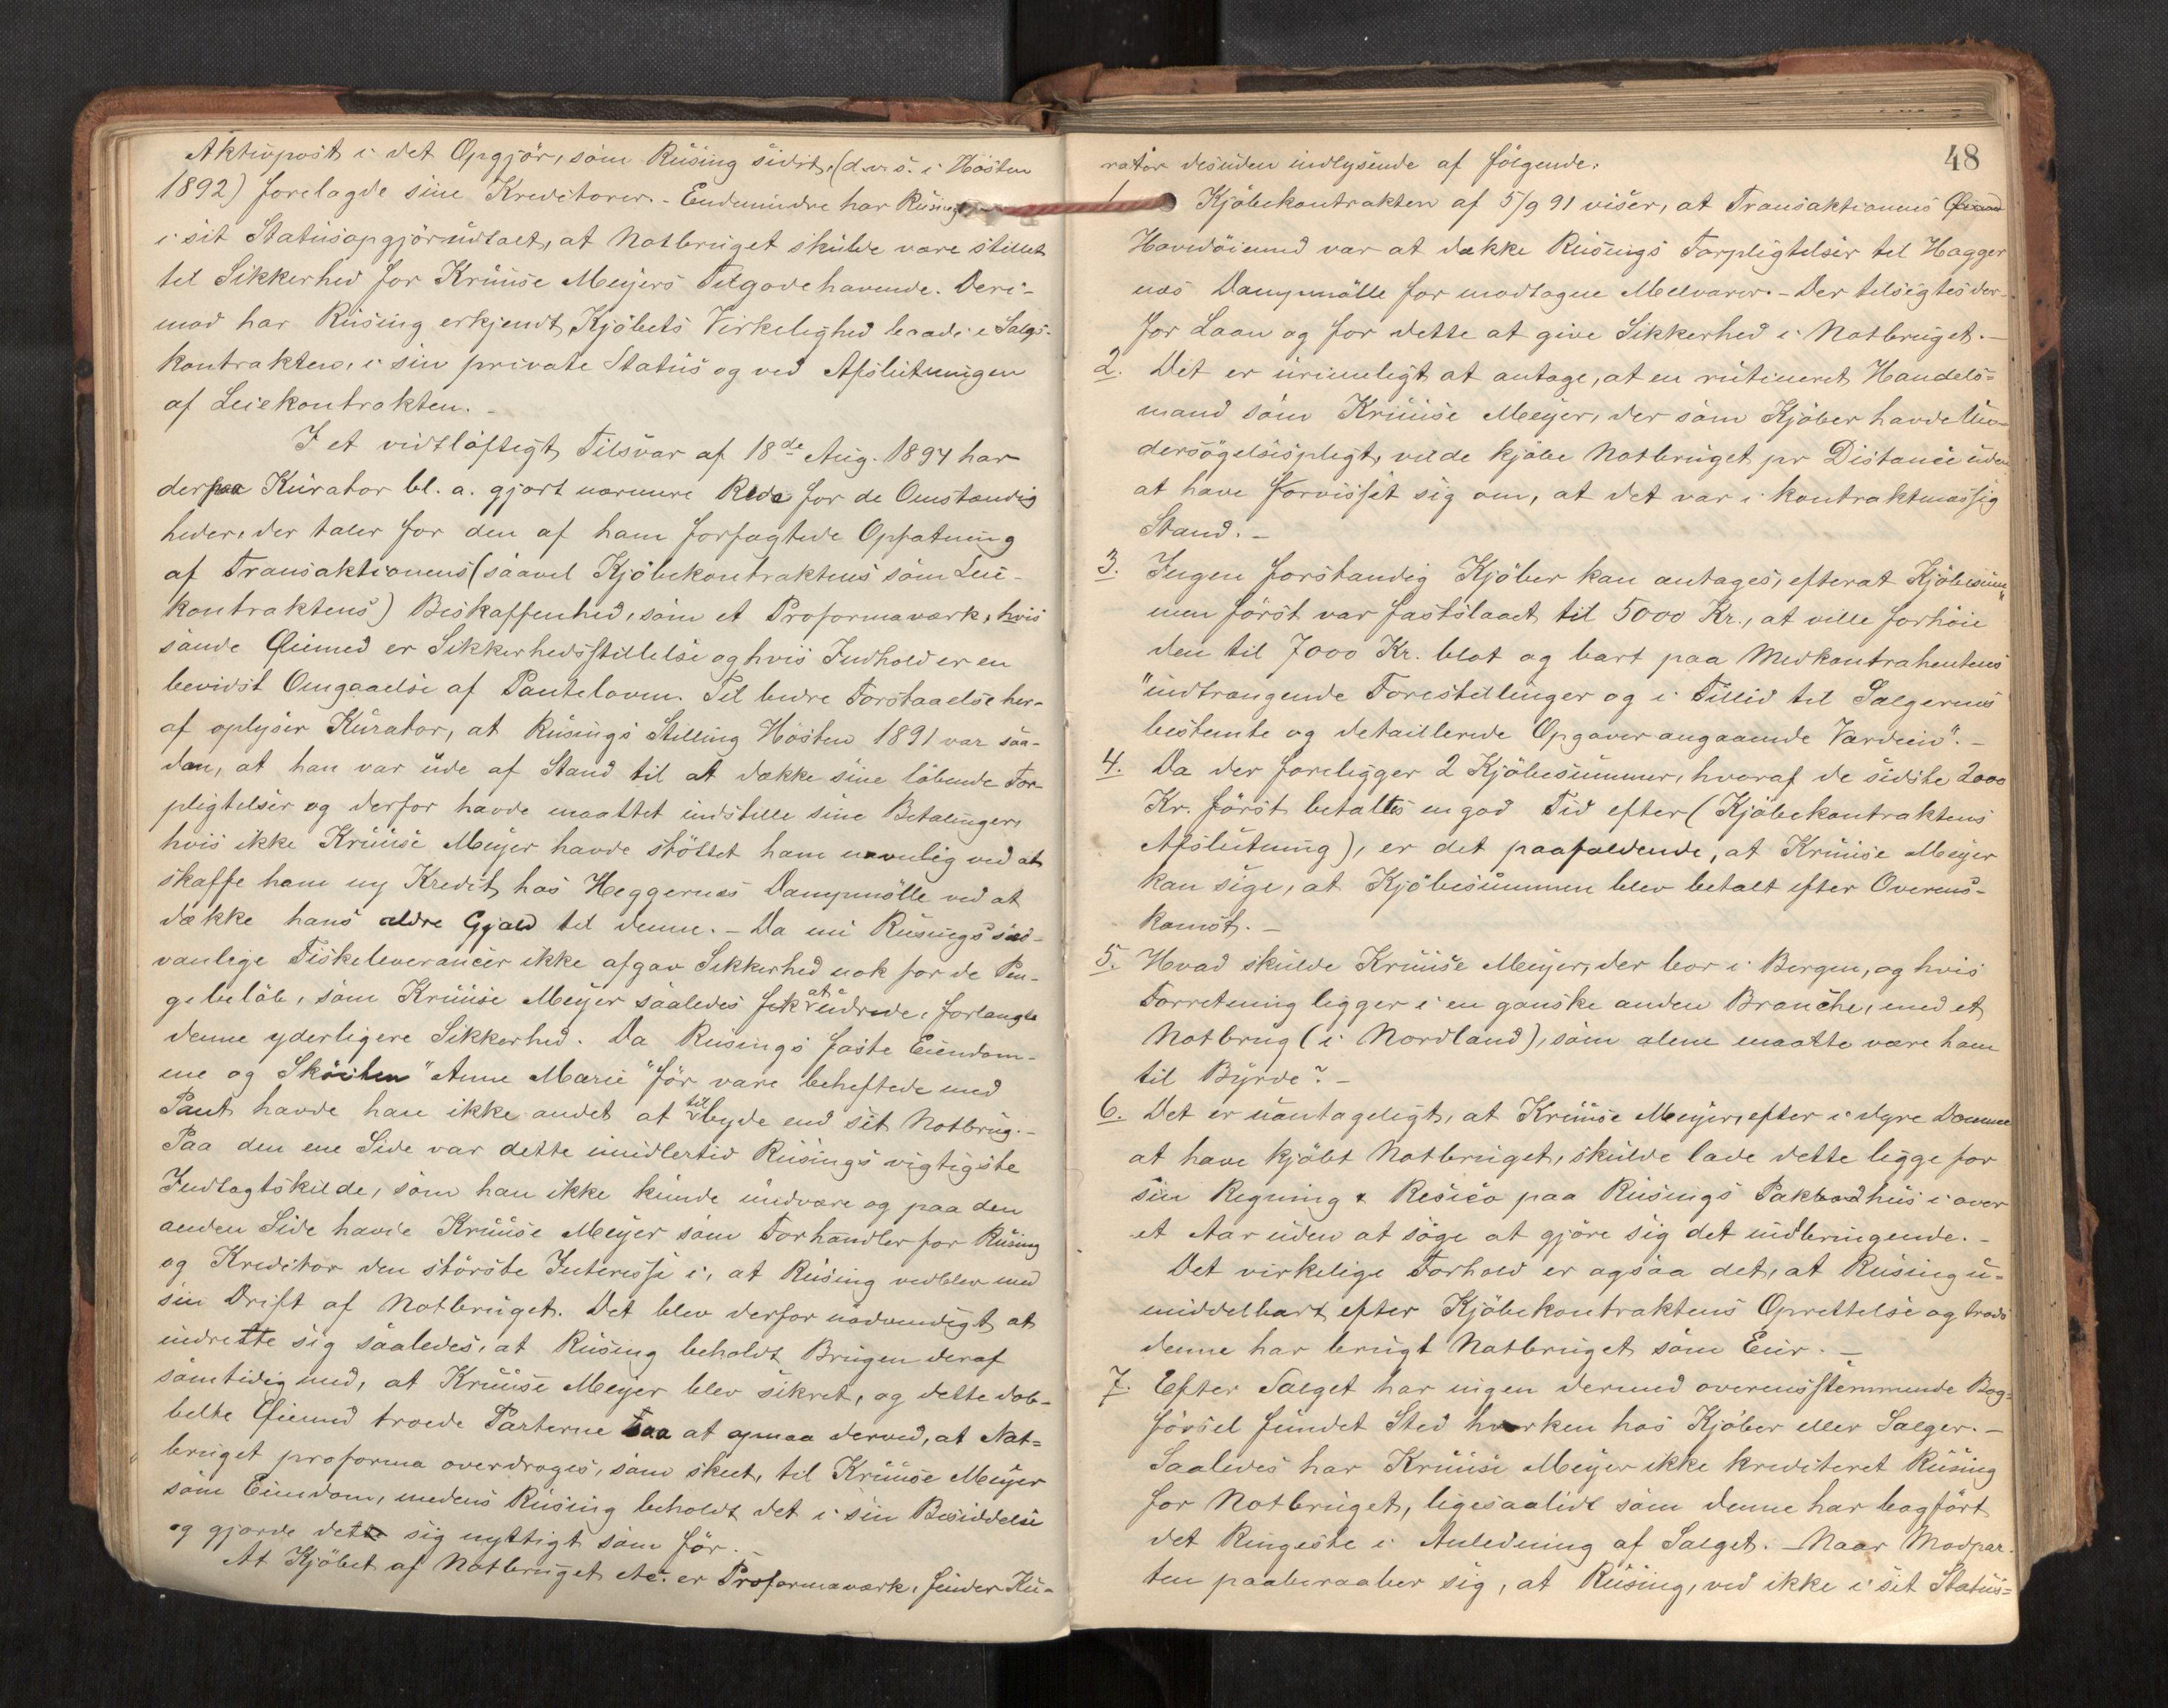 Aktivpost i det Opgjör, som Rüsing sidst, (d.v.s. i Hösten
1892) forelagde sine Kreditorer. - Endmindre har Rüsing
i sit Statusopgjör udtalt, at Notbruget skulde være stillet
til Sikkerhed for Krüüse Meijers Tilgodehavende. Deri-
mod har Rüsing erkjendt Kjöbets Virkelighed baade i Salgs-
kontrakten, i sin private Status og ved Afslutningen
af Leiekontrakten. -
I et vidtlöftigt Tilsvar af 18de Aug. 1894 har
derpaa Kurator bl. a. gjort nærmere Rede for de Omstændig
heder, der taler for den af ham forfægtede Opfatning
af Transaktionens (saavel Kjöbekontraktens som Leie-
kontraktens) Beskaffenhed, som et Proformaværk, hvis
sande Öiemed er Sikkerhedsstillelse og hvis Indhold er en
bevidst Omgaaelse af Panteloven. Til bedre Forstaaelse her-
af oplyser Kurator, at Rüsings Stilling Hösten 1891 var saa-
dan, at han var ude af Stand til at dække sine löbende For-
pligtelser og derfor havde maattet indstille sine Betalinger,
hvis ikke Krüüse Meijer havde stöttet ham navnlig ved at
skaffe ham ny Kredit hos Heggernæs Dampmölle ved at
dække hans ældre Gjæld til denne. - Da nu Rüsings sæd-
vanlige Fiskeleverancer ikke afgav Sikkerhed nok for de Pen-
gebelöb, som Krüüse Meijer saaledes fik at udrede, forlangte
denne yderligere Sikkerhed. Da Rüsings faste Eiendom-
me og Sköiten "Anne Marie" för vare beheftede med
Pant havde han ikke andet at tilbyde end sit Notbrug. -
Paa den ene Side var dette imidlertid Rüsings vigtigste
Indtægtskilde, som han ikke kunde undvære og paa den
anden Side havde Krüüse Meijer som Forhandler for Rüsing
og Kreditor den störste Interesse i, at Rüsing vedblev med
sin Drift af Notbruget. Det blev derfor nödvendigt at
indrette sig saaledes, at Rüsing beholdt Brugen deraf
samtidig med, at Krüüse Meijer blev sikret, og dette dob-
belte Öiemed troede Parterne at opnaa derved, at Not=
bruget proforma overdroges, som skeet, til Krüüse Meijer
som Eiendom, medens Rüsing beholdt det i sin Besiddelse
og gjorde dette sig nyttigt som för. -
At Kjöbet af Notbruget etc. er Proformaværk, finder Ku-
48
rator desuden indlysende af fölgende:
1. Kjöbekontrakten af 5/9 91 viser, at Transaktionens
Hovedöiemed var at dække Rüsings Forpligtelser til Hagger
næs Dampmölle for modtagne Melvarer. - Der tilsigtes der-
for Laan og for dette at give Sikkerhed i Notbruget. -
2. Det er urimeligt at antage, at en rutineret Handels=
mand som Krüüse Meijer, der som Kjöber havde Un-
dersögelsespligt, vilde kjöbe Notbruget pr Distance uden
at have forvisset sig om, at det var i kontraktmæssig
Stand. -
3. Ingen forstandig Kjöber kan antages, efterat Kjöbesum
men först var fastslaaet til 5000 Kr., at ville forhöie
den til 7000 Kr. blot og bart paa Medkontrahentens
"indtrængende Forestillinger og i Tillid til Sælgerens
bestemte og detaillerede Opgaver angaaende Værdien". -
4. Da der foreligger 2 Kjöbesummer, hvoraf de sidste 2000
Kr. först betaltes en god Tid efter (Kjöbekontraktens
Afslutning), er det paafaldende, at Krüüse Meijer
kan sige, at Kjöbesummen blev betalt efter Overens-
komst. -
5. Hvad skulde Krüüse Meijer, der bor i Bergen, og hvis
Forretning ligger i en ganske anden Branche, med et
Notbrug (i Nordland), som alene maatte være ham
til Byrde? -
6. Det er uantageligt, at Krüüse Meijer, efter i dyre Domme
at have kjöbt Notbruget, skulde lade dette ligge for
sin Regning & Resico paa Rüsings Pakhus i over
et Aar uden at söge at gjöre sig det indbringende. -
Det virkelige Forhold er ogsaa det, at Rüsing u=
middelbart efter Kjöbekontraktens Oprettelse og trods
denne har brugt Notbruget som Eier. -
7. Efter Salget har ingen dermed overensstemmende Bog=
försel fundet Sted hverken hos Kjöber eller Sælger. -
Saaledes har Krüüse Meijer ikke krediteret Rüsing
for Notbruget, ligesaalidt som denne har bogfört
det Ringeste i Anledning af Salget. - Naar Modpar-
ten paaberaaber sig, at Rüsing, ved ikke i sit Status=